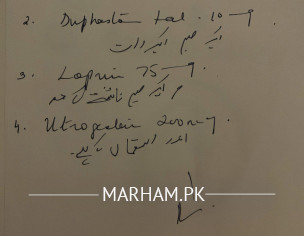 2. Duphaston Tab. 10mg
ایک صبح ایک رات
3. Loprin 75mg.
ایک صبح ناشتے کے بعد
4. Utrogestan 200mg.
اندر استعمال کیلئے
MARHAM.PK